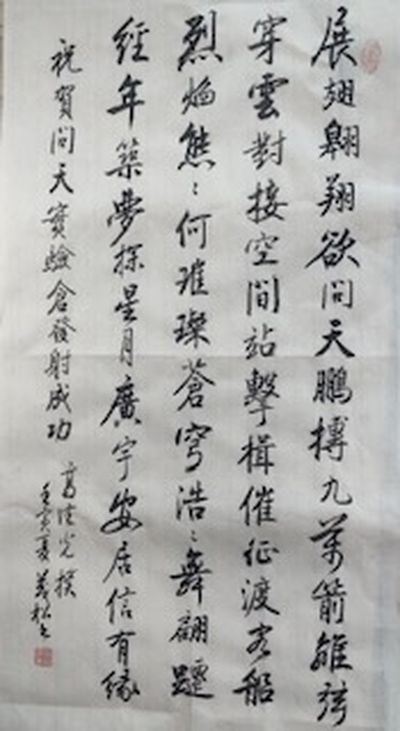 展翅翱翔欲問天鵬搏九萬箭離弦
穿雲對接空間站擊楫催征渡客船
烈焰熊々何璀璨蒼穹浩々舞翩躚
經年築夢探星月廣宇安居信有緣
祝賀問天實驗倉發射成功
撰
壬寅夏